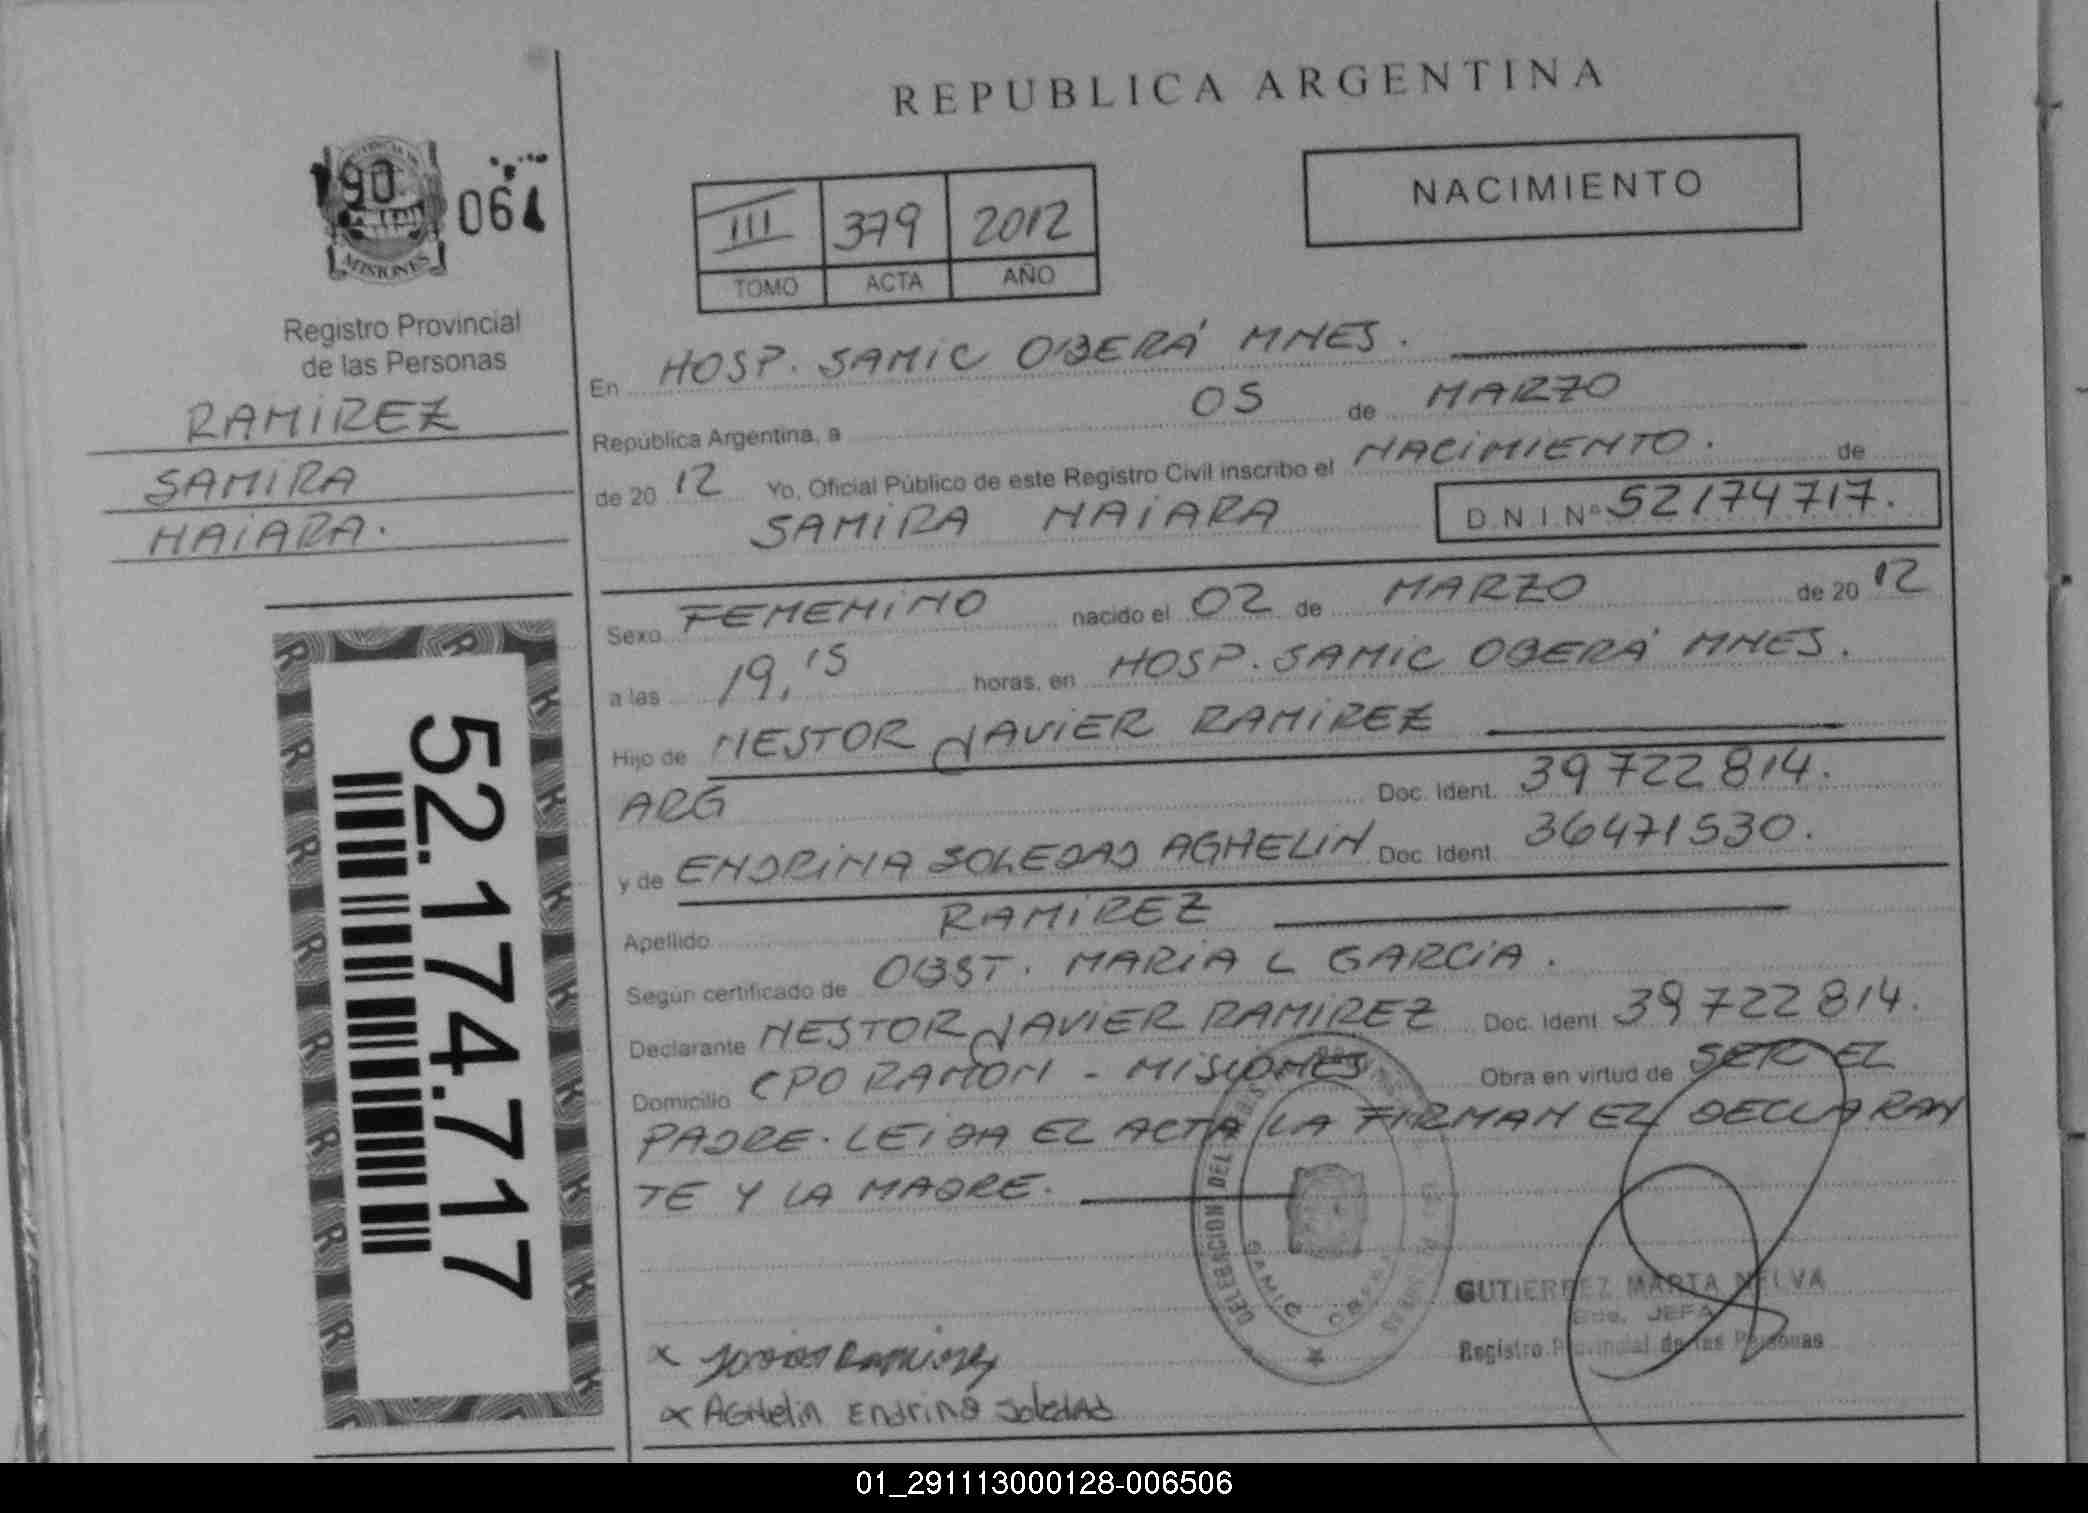 REPUBLICA ARGENTINA
NACIMIENTO
190 064
MISIONES
III 379 2012
TOMO ACTA AÑO
Registro Provincial
de las Personas
RAMIREZ
SAMIRA
NAIARA.
52.174.717
En HOSP. SAMIC OBERÁ MNES.
República Argentina, a 05 de MARZO
de 20 12 Yo, Oficial Público de este Registro Civil inscribo el NACIMIENTO. de
SAMIRA NAIARA D.N.I.Nº 52174717.
Sexo FEMENINO nacido el 02 de MARZO de 20 12
a las 19,15 horas, en HOSP. SAMIC OBERÁ MNES.
Hijo de NESTOR JAVIER RAMIREZ
ARG Doc. Ident. 39722814.
y de ENDRINA SOLEDAD AGHELIN Doc. Ident. 36471530.
Apellido RAMIREZ
Según certificado de OBST. MARIA L GARCIA.
Declarante NESTOR JAVIER RAMIREZ Doc. Ident. 39722814.
Domicilio CPO RAMON - MISIONES Obra en virtud de SER EL
PADRE. LEIDA EL ACTA LA FIRMAN EL DECLARAN
TE Y LA MADRE.
DELEGACION DEL
SAMIC OBERA
GUTIERREZ MARTA NELVA
JEFA
Registro Provincial de las Personas
x Ramirez
x AGHelin Endrina Soledad
01_291113000128-006506